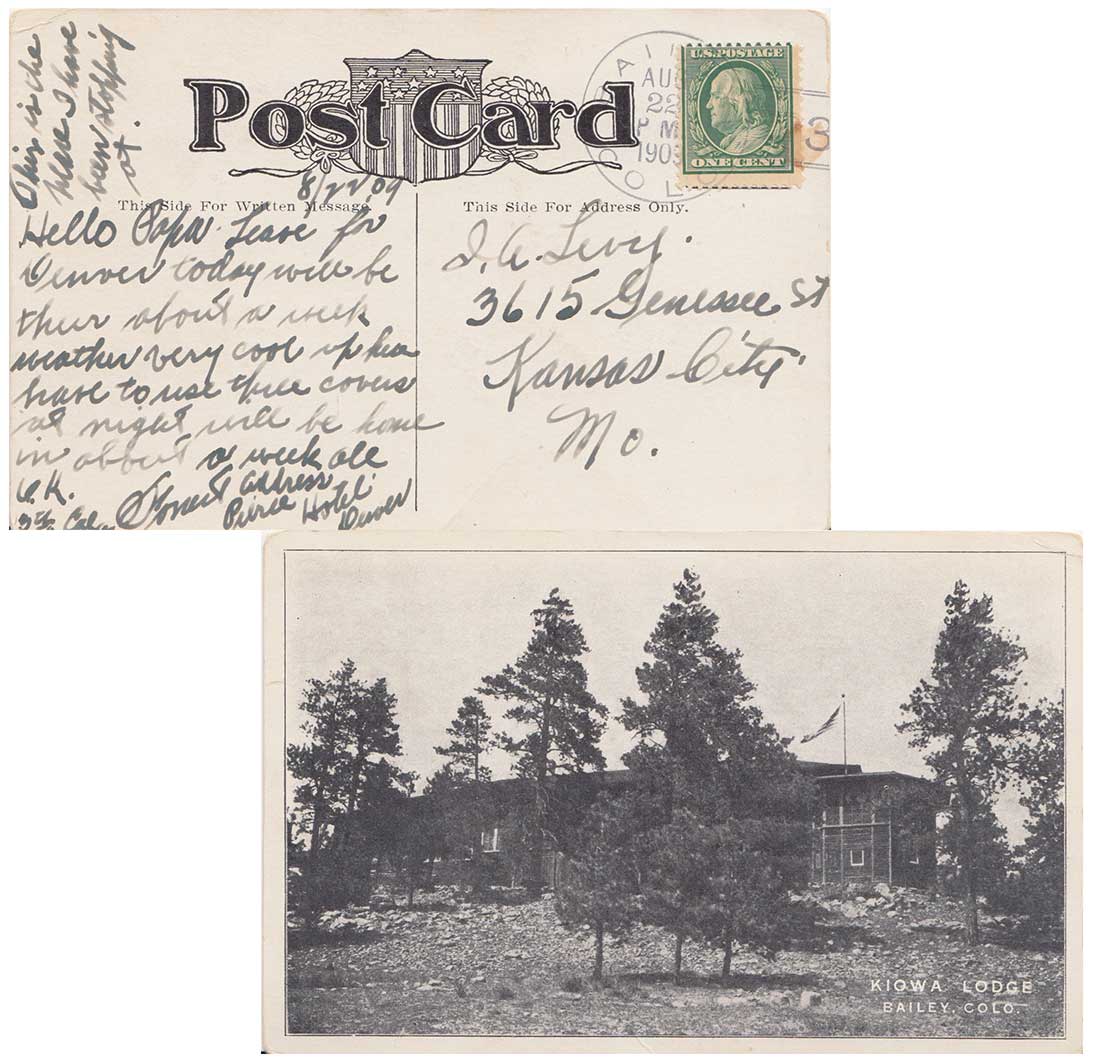 This is the
place I have
been stopping
at.
Post Card
U.S. POSTAGE
ONE CENT
AUG
22
P M
1909
COLO
3
8/22/09
This Side For Written Message.
This Side For Address Only.
Hello Papa. Leave for
Denver today will be
their about a week
weather very cool up hear
have to use three covers
at night will be home
in about a week all
O.K.
Address
Pierce Hotel
Denver
I. A. Levy.
3615 Genessee St
Kansas City.
Mo.
KIOWA LODGE
BAILEY, COLO.